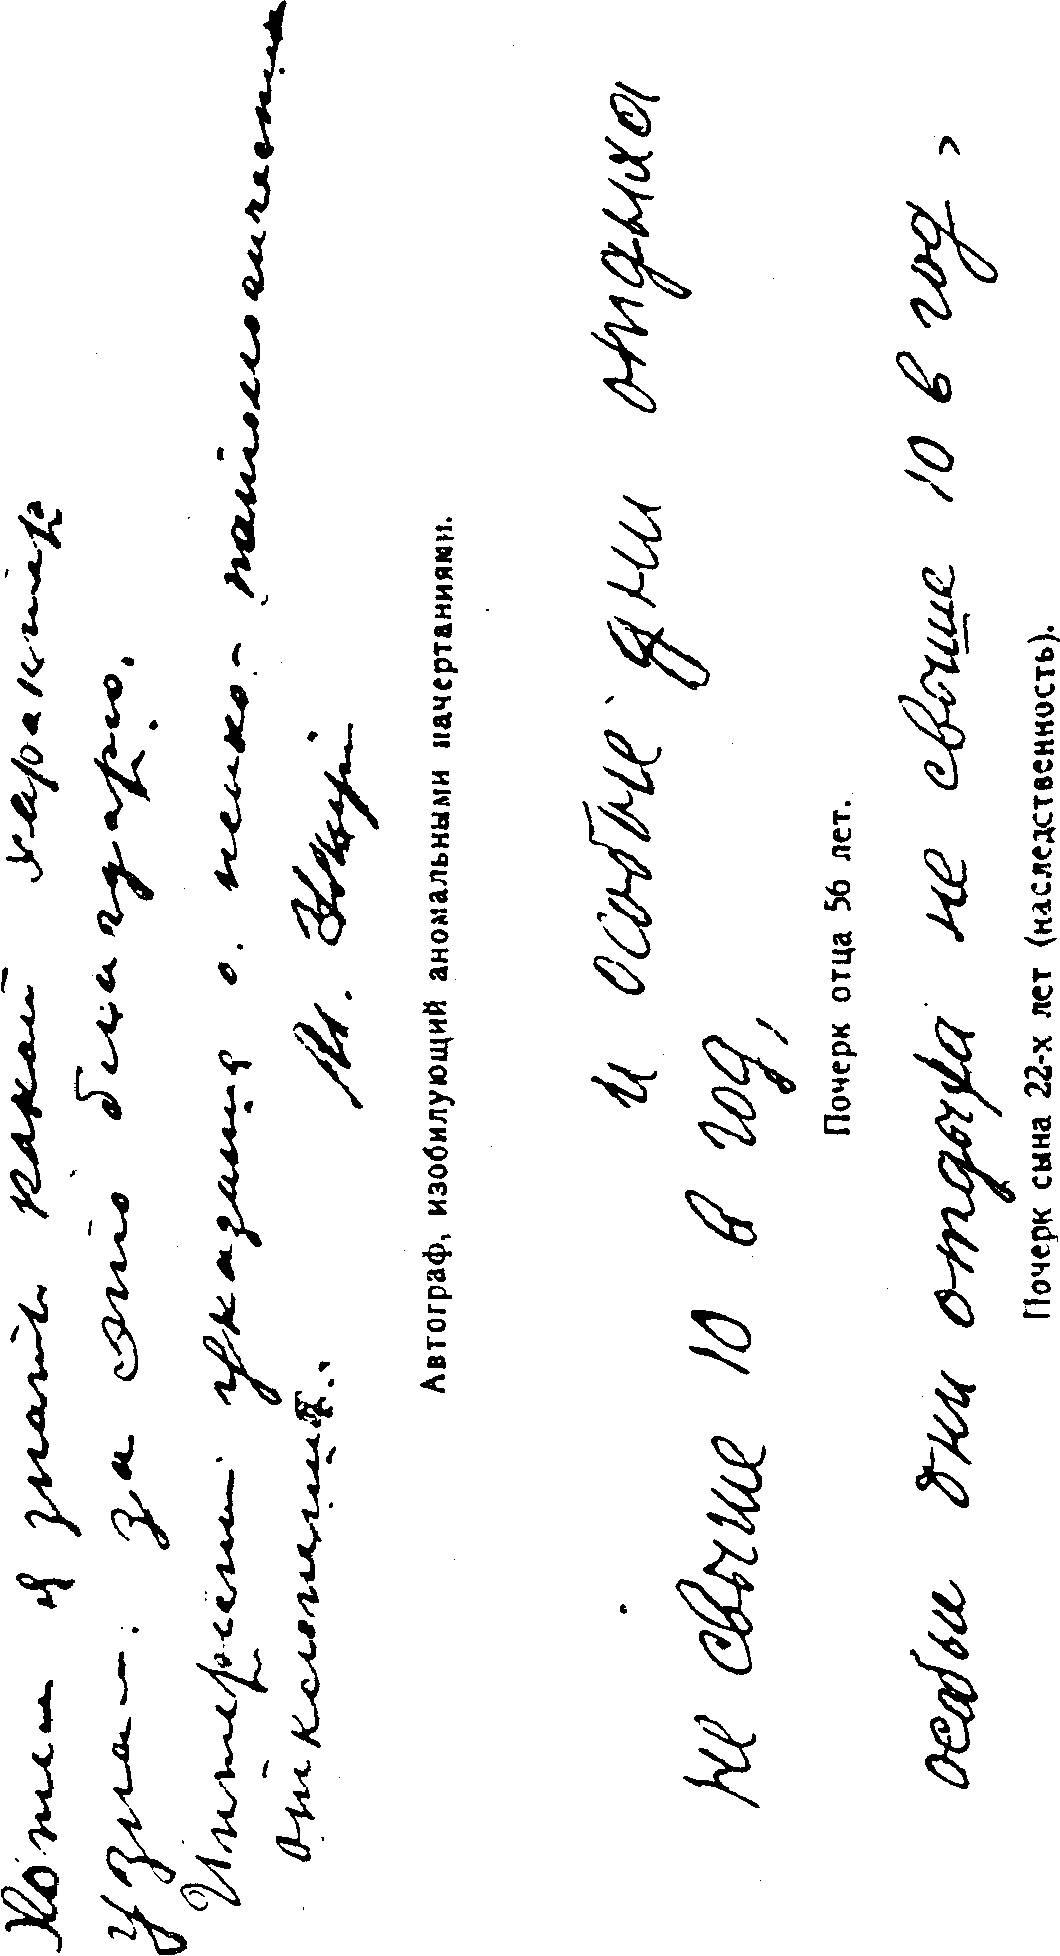 Хотел я знать какой характер
узнал. за это благодарю.
Интересны указания о. психо-патологических
отклонениях.
Автограф, изобилующий аномальными начертаниями.
и особые дни отдыха
не свыше 10 в год,
Почерк отца 56 лет.
особые дни отдыха не свыше 10 в год,
Почерк сына 22-х лет (наследственность).